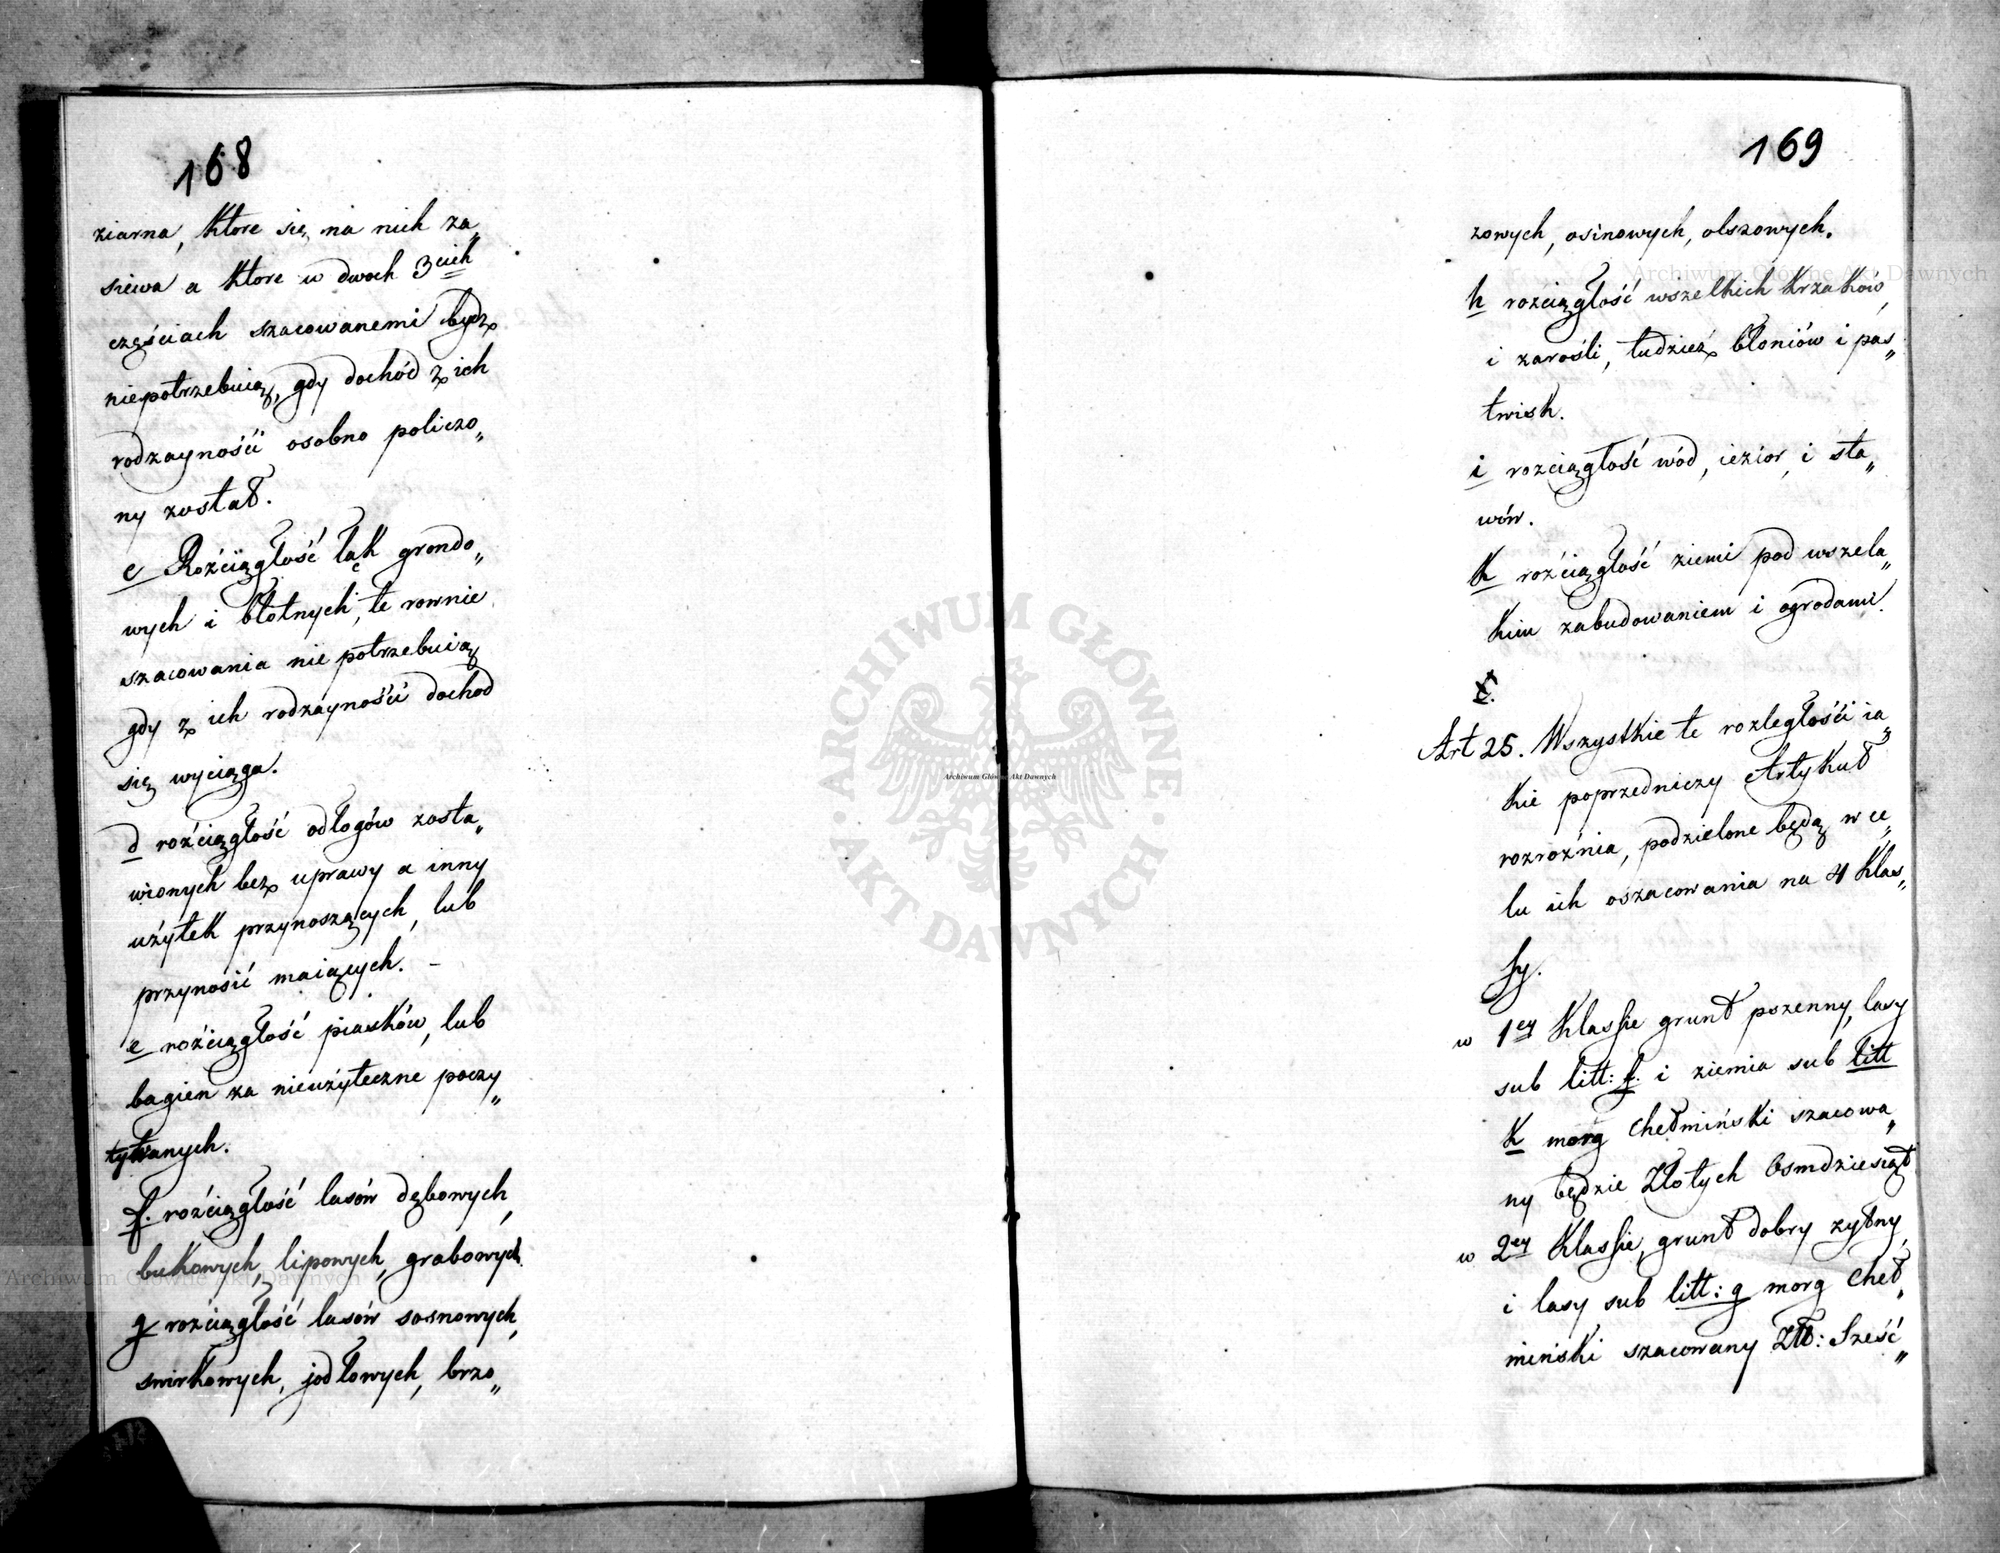 168
ziarna, ktore się na nich za„
siewa a ktore w dwoch 3cich
częściach szacowanemi bydz
niepotrzebuią, gdy dochód z ich
rodzayności osobno policzo„
ny został.
c Roźciągłość łąk grondo„
wych i błotnych, te rownie
szacowania nie potrzebuią
gdy z ich rodzayności dochod
się wyciąga.
d roźciągłość odłogów zosta„
wionych bez uprawy a inny
użytek przynoszących, lub
przynosić maiących. –
e roźciągłość piasków, lub
bagien za nieużyteczne poczy„
tywanych.
f. roźciągłość lasów dębowych,
bukowych, lipowych, grabowych
g roźciągłość lasów sosnowych,
swirkowych, jodłowych, brzo„
169
zowych, osinowych, olszowych.
h rozciągłość wszelkich krzaków,
i zarośli, tudzież błoniów i pas„
twisk.
i rozciągłość wód, iezior, i sta„
wów.
k roźciągłość ziemi pod wszela„
kim zabudowaniem i ogrodami.
Art 25. Wszystkie te rozległości ia„
kie poprzedniczy Artykuł
rozroźnia, podzielone będą w ce„
lu ich oszacowania na 4 Klas„
sy.
w 1ey Klassie grunt pszenny, lasy
sub litt: f. i ziemia sub litt
k morg Chełmiński szacowa„
ny będzie Złotych Osmdziesiąt
w 2ey Klassie, grunt dobry zytny,
i lasy sub litt: g morg Cheł„
miński szacowany Złł: Sześć„
Archiwum Główne Akt Dawnych
ARCHIWUM GŁÓWNE · AKT DAWNYCH ·
Archiwum Główne Akt Dawnych
Archiwum Główne Akt Dawnych